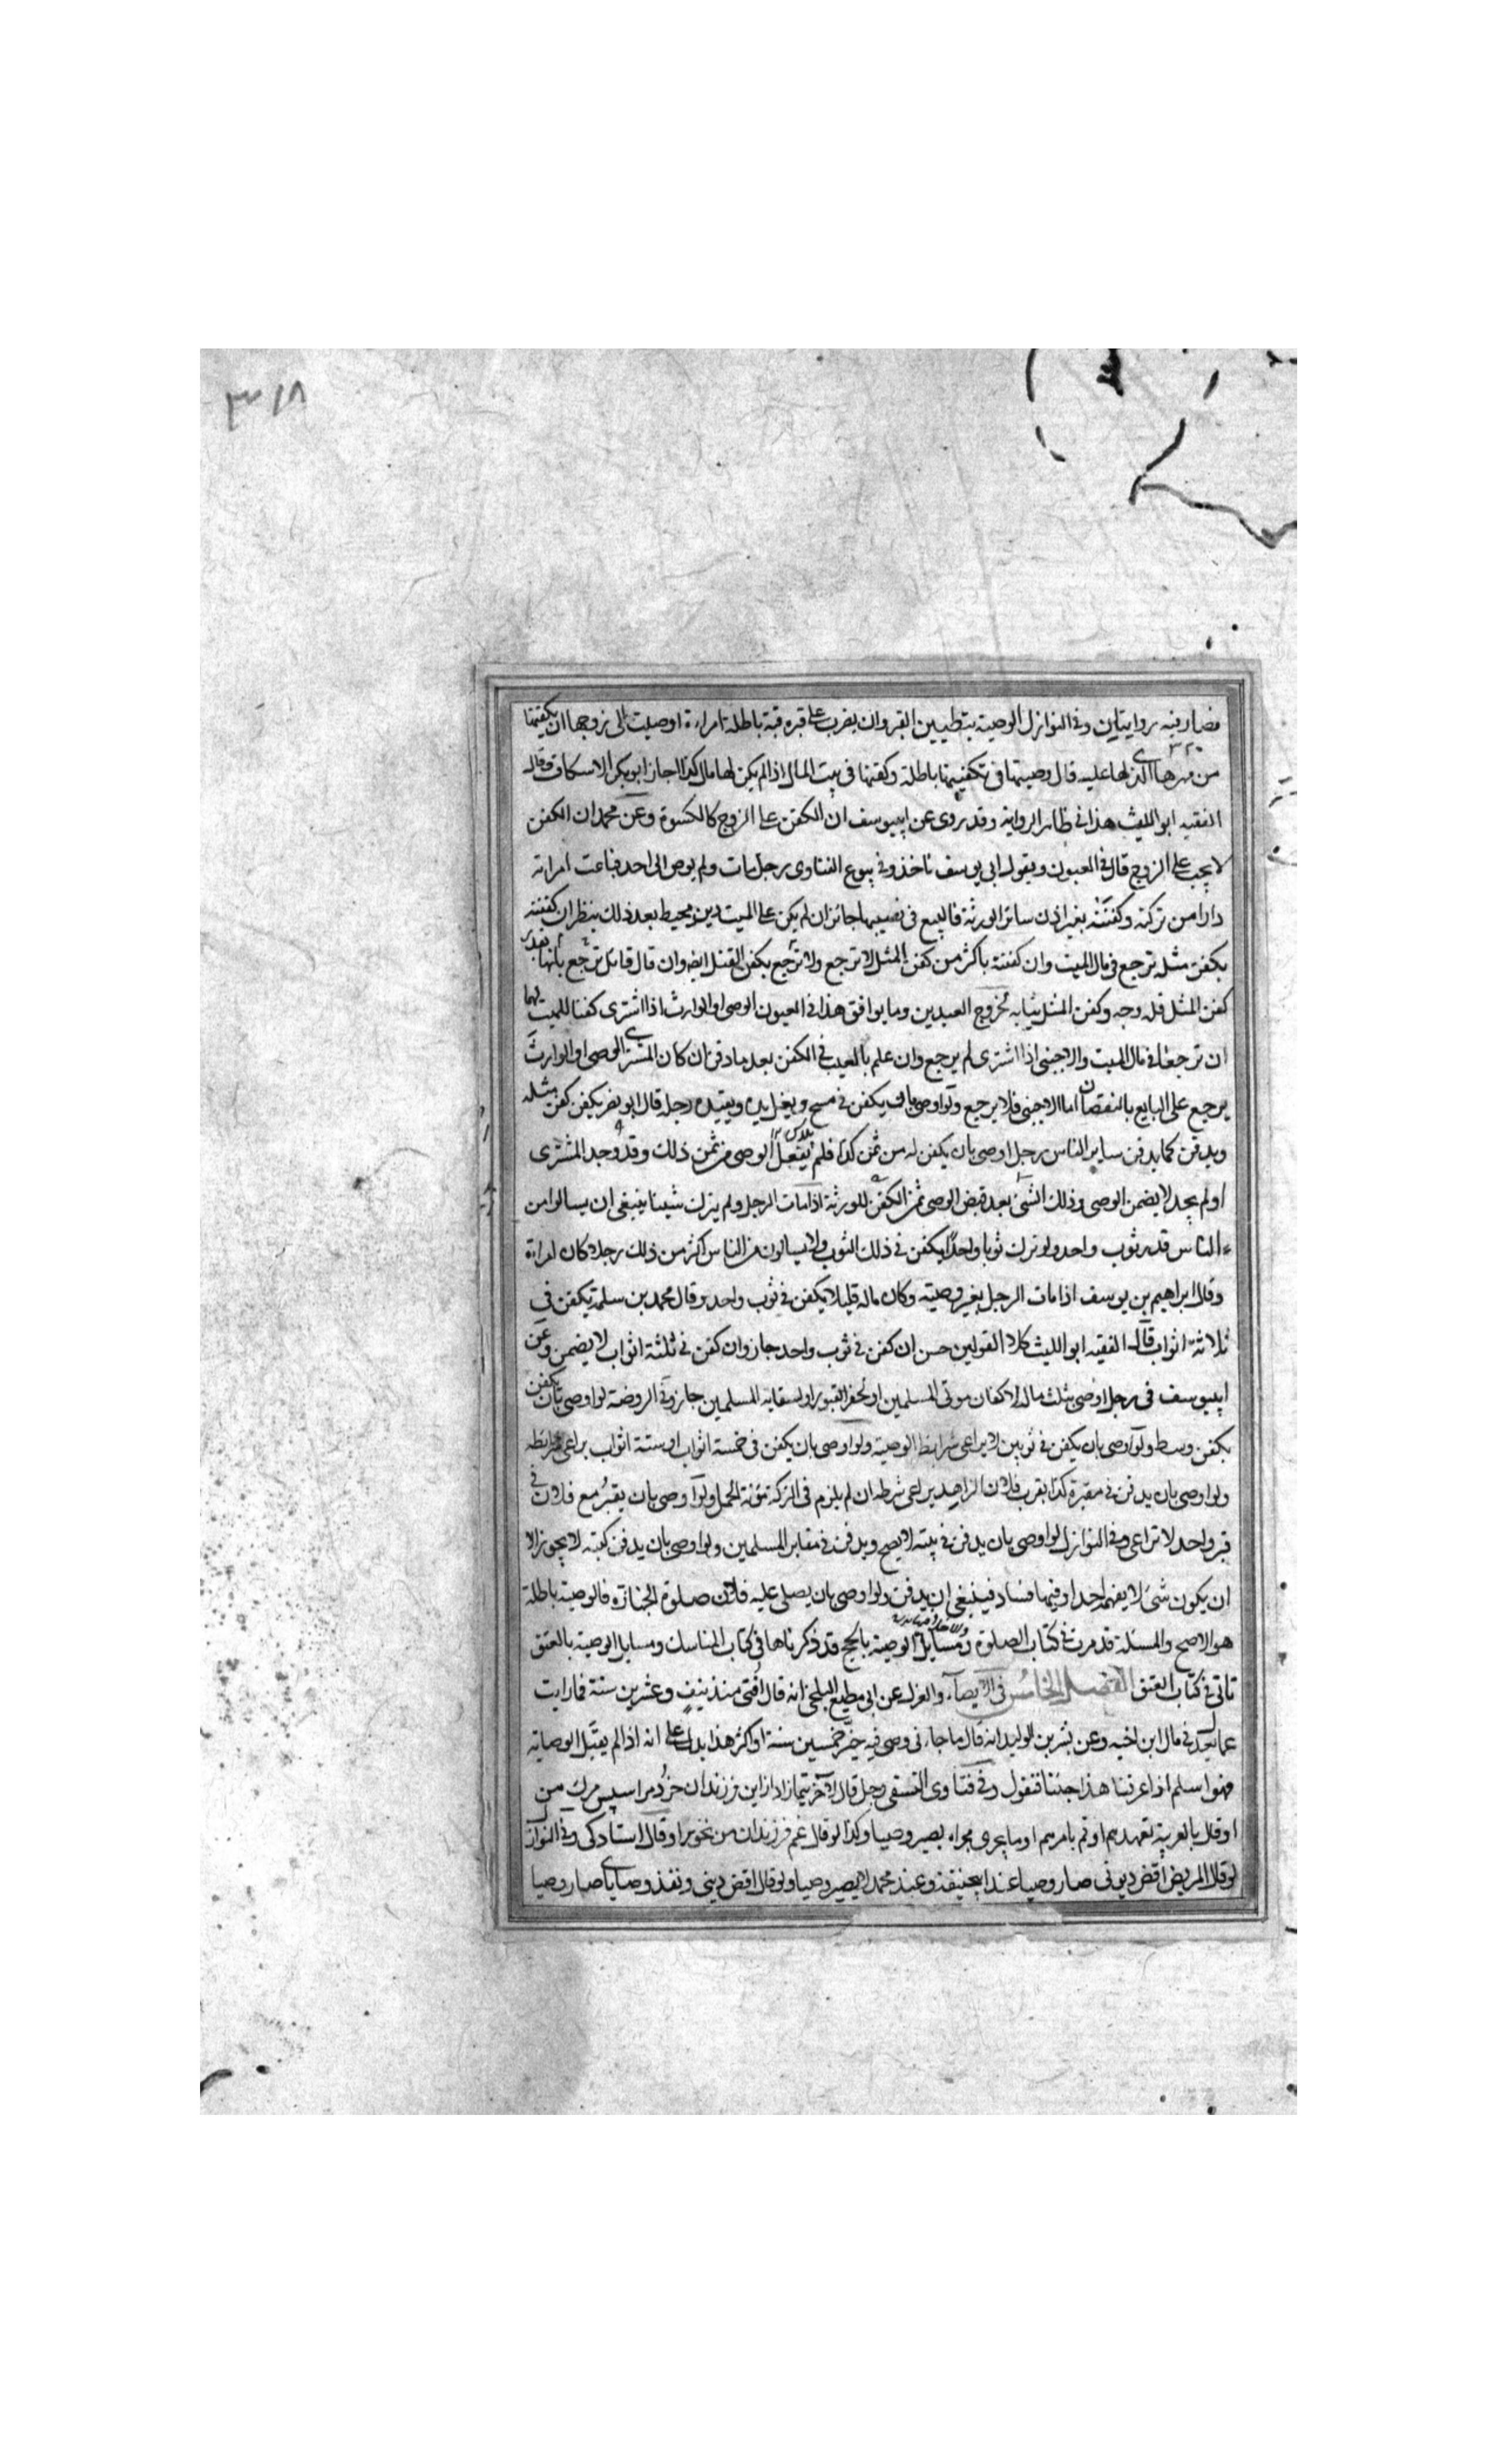 ٣١٨
فصار فيه روايتان وفي النوازل الوصية بتطيين القبر وان يضرب على قبره قبة باطلة امراءة اوصت الى زوجها ان يكفنها
من مهرها الذي لها عليه قال وصيتها في تكفينها باطلة وكفنها في بيت المال اذا لم يكن لها مال كذا اجاز ابو بكر الاسكاف وقال
الفقيه ابو الليث هذا في ظاهر الرواية وقد روى عن ابيوسف ان الكفن على الزوج كالكسوة وعن محمد ان الكفن
لا يجب على الزوج قال في العيون وبقول ابي يوسف ناخذ وفي بيوع الفتاوى رجل مات ولم يوص الى احد فباعت امراته
دارا من تركته وكفنته بغير اذن سائر الورثة فالبيع في نصيبها جائز ان لم يكن على الميت دين محيط بعد ذلك ينظر ان كفنته
بكفن مثله ترجع في مال الميت وان كفنته باكثر من كفن المثل لا ترجع ولا ترجع بكفن المثل ايضا وان قال قائل ترجع بانها بقدر
كفن المثل فله وجه وكفن المثل ثيابه لخروج العيدين وما يوافق هذا في العيون الوصي او الوارث اذا اشترى كفنا للميت لهما
ان ترجعا في مال الميت والاجنبي اذا اشترى لم يرجع وان علم بالعيب في الكفن بعد ما دفن ان كان المشتري الوصي او الوارث
يرجع على البايع بالنقصان اما الاجنبي فلا يرجع ولو اوصى بان يكفن في مسح ويغل يده ويقيد رجله قال ابو نصر يكفن كفن مثله
ويدفن كما يدفن ساير الناس رجل اوصى بان يكفن له من ثمن كذا فلم يفعل الوصي من ثمن ذلك وقد وجد المشترى
او لم يجد لا يضمن الوصي وذلك الشئ بعد قبض الوصي ثمن الكفن للورثة اذا مات الرجل ولم يترك شيئا ينبغي ان يسالوا من
الناس قدر ثوب واحد ولو ترك ثوبا واحدا يكفن في ذلك الثوب ولا يسالون من الناس اكثر من ذلك رجلا كان امراة
وقال ابراهيم بن يوسف اذا مات الرجل بغير وصية وكان ماله قليلا يكفن في ثوب واحد وقال محمد بن سلمة يكفن في
ثلاثة اثواب قال الفقيه ابو الليث كلا القولين حسن ان كفن في ثوب واحد جاز وان كفن في ثلثة اثواب لا يضمن وعن
ابيوسف في رجل اوصى بثلث ماله لاكفان موتى المسلمين او لحفر القبور او لسقاية المسلمين جاز وفي الروضة لو اوصى بان يكفن
بكفن وسط ولو اوصى بان يكفن في ثوبين لا يراعى شرائط الوصية ولو اوصى بان يكفن في خمسة اثواب او ستة اثواب يراعى شرائطه
ولو اوصى بان يدفن في مقبرة كذا بقرب فلان الزاهد يراعى شرطه ان لم يلزم في التركة مؤنة الحمل ولو اوصى بان يقبر مع فلان في
قبر واحد لا تراعى وفي النوازل لو اوصى بان يدفن في بيته لا يصح ويدفن في مقابر المسلمين ولو اوصى بان يدفن كتبه لا يجوز الا
ان يكون شئ لا يفهمه احد او فيها فساد فينبغي ان يدفن ولو اوصى بان يصلى عليه فلان صلوة الجنازة فالوصية باطلة
هو الاصح والمسئلة قد مرت في كتاب الصلوة ومسايل الوصية بالحج قد ذكرناها في كتاب المناسك ومسايل الوصية بالعتق
تاتي في كتاب العتق الفصل الخامس في الايصاء والعزل عن ابي مطيع البلخي انه قال افتى منذ نيف وعشرين سنة فما رايت
عما يعدل في مال ابن اخيه وعن بشر بن الوليد انه قال ما جاءني وصي فيه خير خمسين سنة او اكثر هذا يدل على انه اذا لم يقبل الوصاية
فهو اسلم اذا عرفنا هذا جئنا فنقول وفي فتاوى النسفي رجل قال لآخر تيمار از اين فرزندان خرد مرا سپس مرك من
او قال بالعربية تعهدهم او قم بامرهم او ما يجري مجراه يصير وصيا وكذا لو قال غم فرزندان من بخور او قال استادكى وفي النوازل
لو قال المريض اقض ديوني صار وصيا عند ابيحنيفة وعند محمد لا يصير وصيا ولو قال اقض ديني ونفذ وصاياى صار وصيا